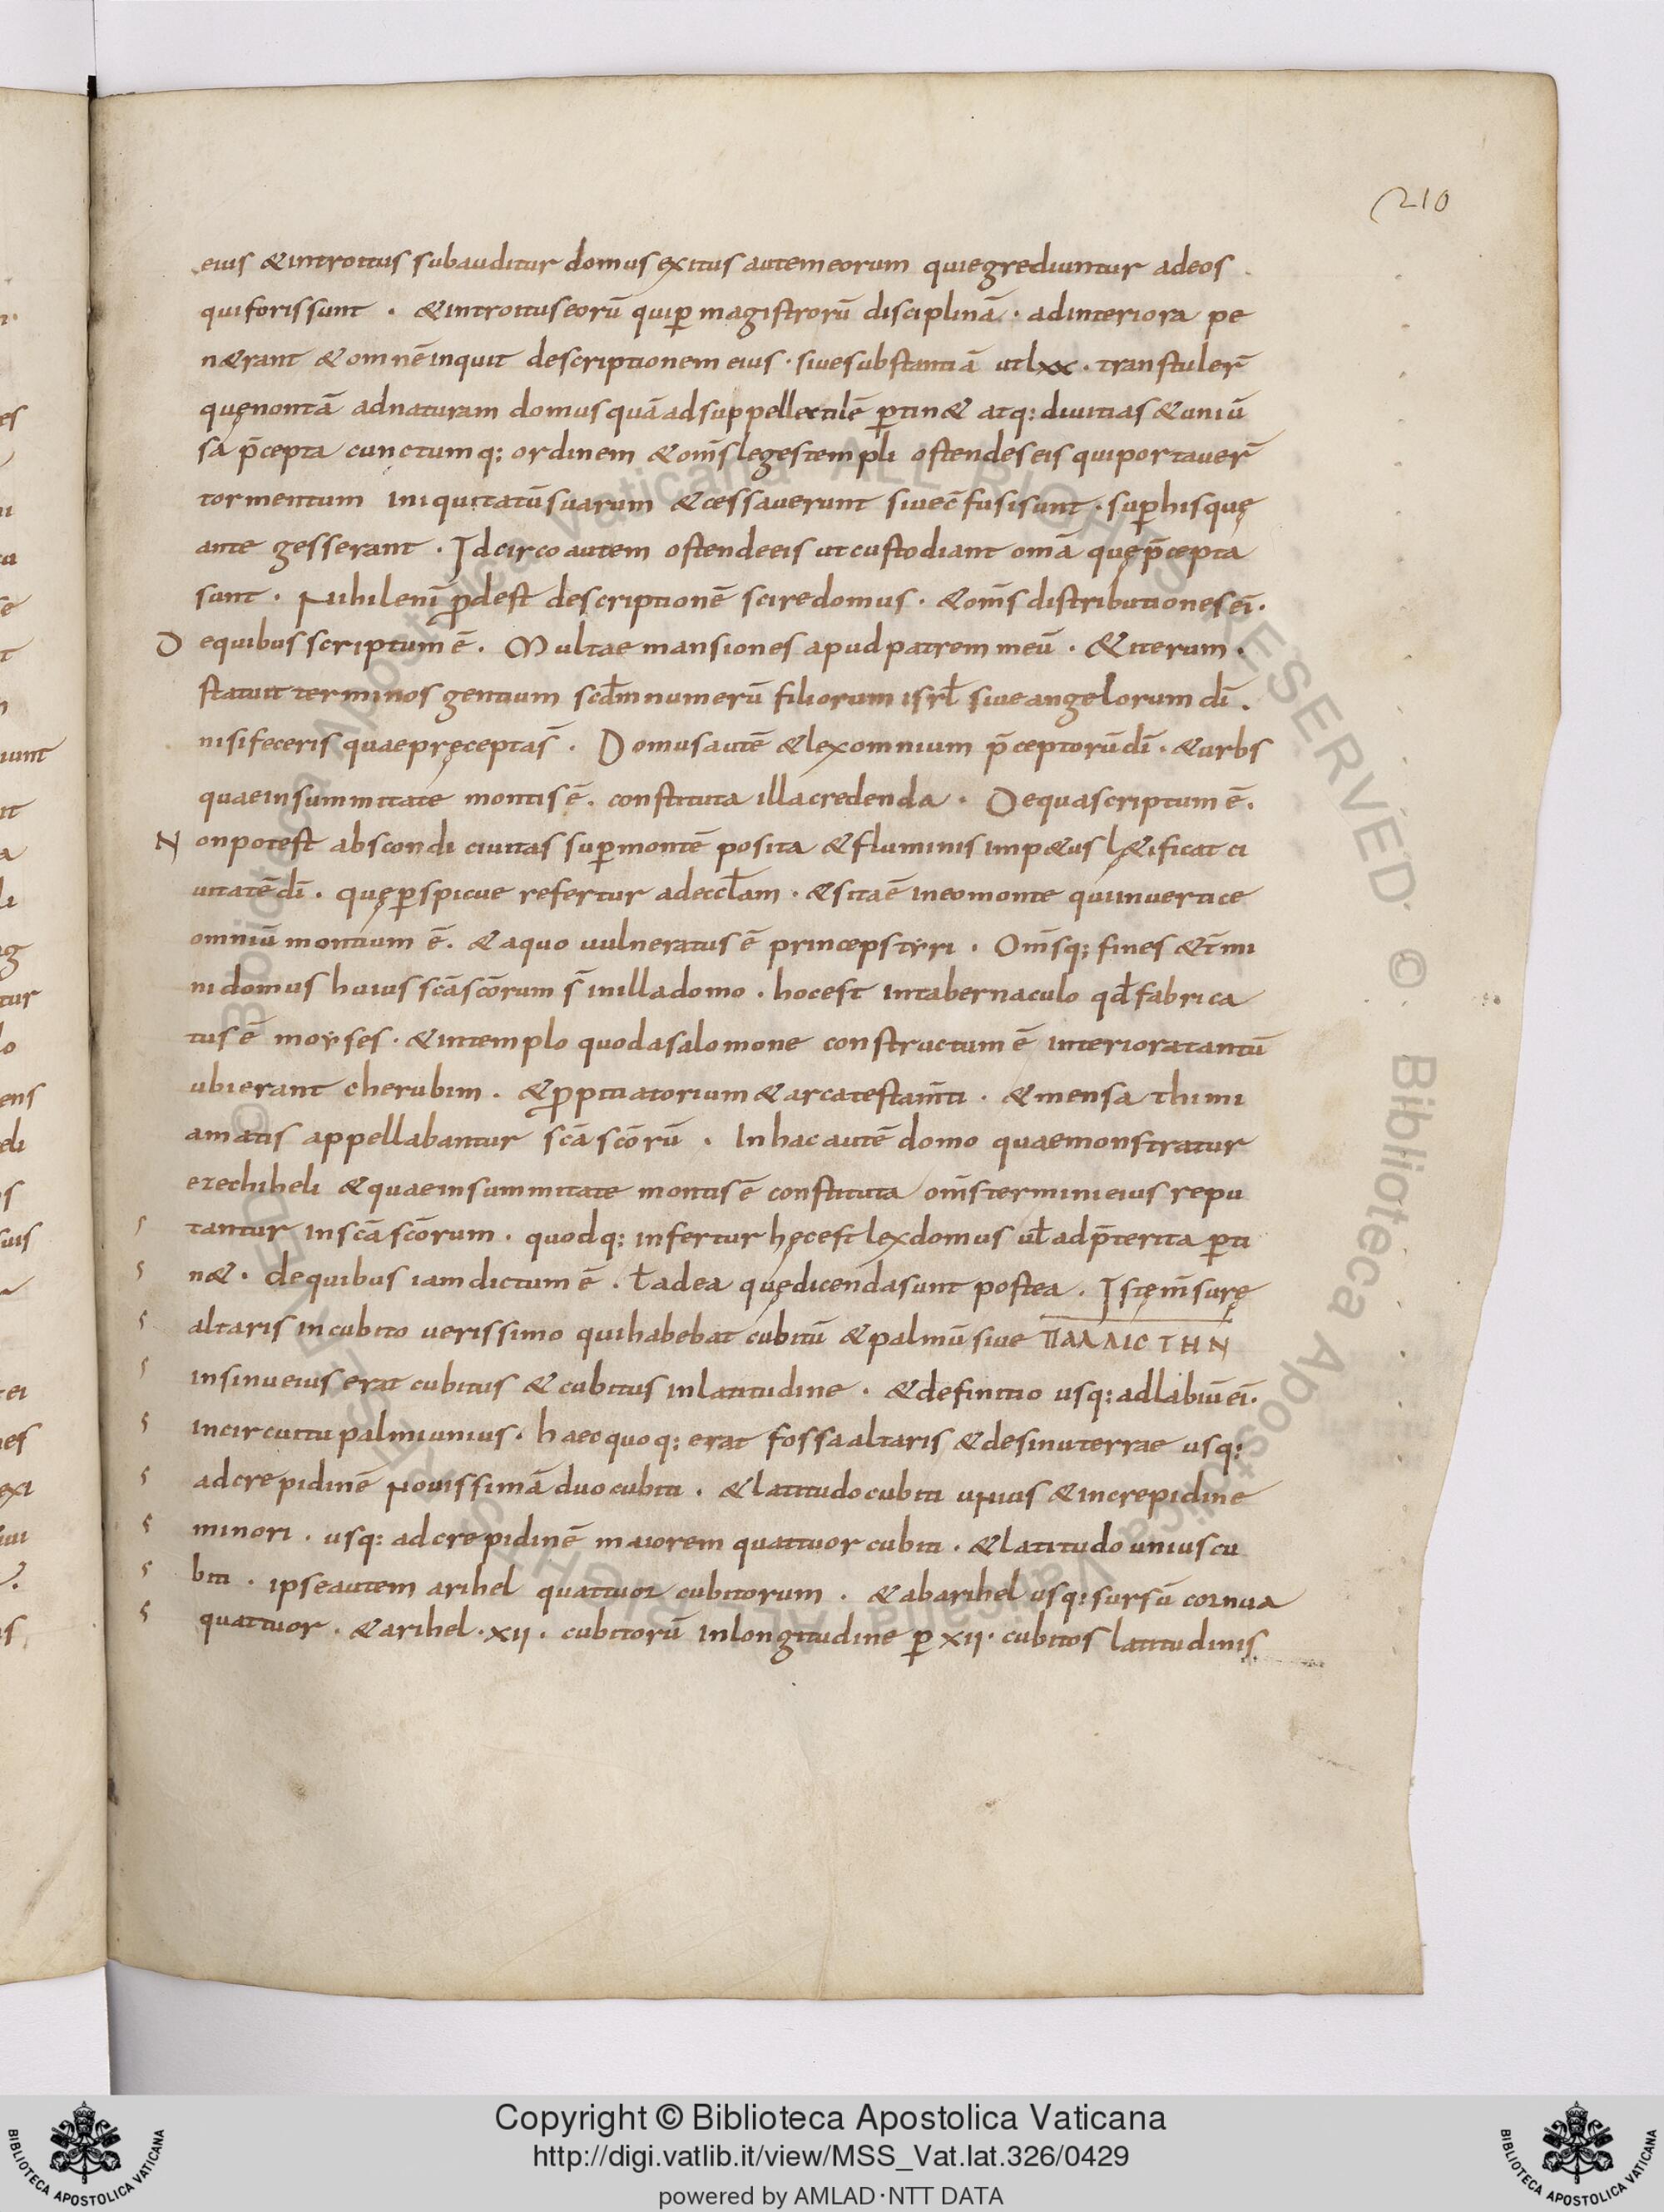 210
eius & introitus subauditur domus exitus autem eorum qui egrediuntur ad eos
qui foris sunt . & introitus eorū qui ꝑ magistrorū disciplinā . ad interiora pe
n&rant & omnē inquit descriptionem eius . siue substantiā ut lxx . transtuler̄
quę non tā ad naturam domus quā ad suppellectilē ꝑtin& atq: diuitias & uniū
sa p̄cepta cunctumq: ordinem & om̄s leges templi ostendes eis qui portauer̄
tormentum iniquitatū suarum & cessauerunt siue c̄fusi sunt . suꝑ his quę
ante gesserant . Idcirco autem ostende eis ut custodiant om̄a quę p̄cepta
sunt . Nihil enī ꝓdest descriptionē scire domus . & om̄s distributiones ei̅ .
D e quibus scriptum ē . Multae mansiones apud patrem meū . & iterum .
statuit terminos gentium scd̄m numerū filiorum isrl̄ siue angelorum dī .
nisi feceris quae pręcepta s̄ . Domus autē & lex omnium p̄ceptorū dī . & urbs
quae in summitate montis ē . constituta illa credenda . De qua scriptum ē .
N on potest abscondi ciuitas suꝑ montē posita & fluminis imp&us lę&ificat ci
uitatē dī . quę ꝑspicue refertur ad eccl̄am . & sita ē in eo monte qui in uertice
omniū montium ē . & a quo uulneratus ē princeps tyri . Om̄sq; fines & t̄mi
ni domus huius sc̄a sc̄orum s̄ in illa domo . hoc est in tabernaculo qd̄ fabrica
tus ē moyses . & in templo quod a salomone constructum ē interiora tantū
ubi erant cherubim . & ꝓpitiatorium & arca testam̄ti . & mensa thimi
amatis appellabantur sc̄a sc̄orū . In hac autē domo quae monstratur
ezechiheli & quae in summitate montis ē constituta om̄s termini eius repu
tantur in sc̄a sc̄orum . quodq: infertur hęc est lex domus ul̄ ad p̄terita ꝑti
n& . de quibus iam dictum ē . l̄ ad ea quę dicenda sunt postea . Istę m̄surę
altaris in cubito uerissimo qui habebat cubitū & palmū siue ΠΑΛΑΙCΤΗΝ
in sinu eius erat cubitus & cubitus in latitudine . & definitio usq: ad labiū ei̅ .
in circuitu palmi unius . haec quoq: erat fossa altaris & de sinu terrae usq:
ad crepidinē nouissimā duo cubiti . & latitudo cubiti unius & in crepidine
minori . usq: ad crepidinē maiorem quattuor cubiti . & latitudo unius cu
biti . ipse autem arihel quattuor cubitorum . & ab arihel usq: sursū cornua
quattuor . & arihel . xii . cubitorū in longitudine ꝑ xii . cubitos latitudinis
Copyright © Biblioteca Apostolica Vaticana
http://digi.vatlib.it/view/MSS_Vat.lat.326/0429
powered by AMLAD·NTT DATA